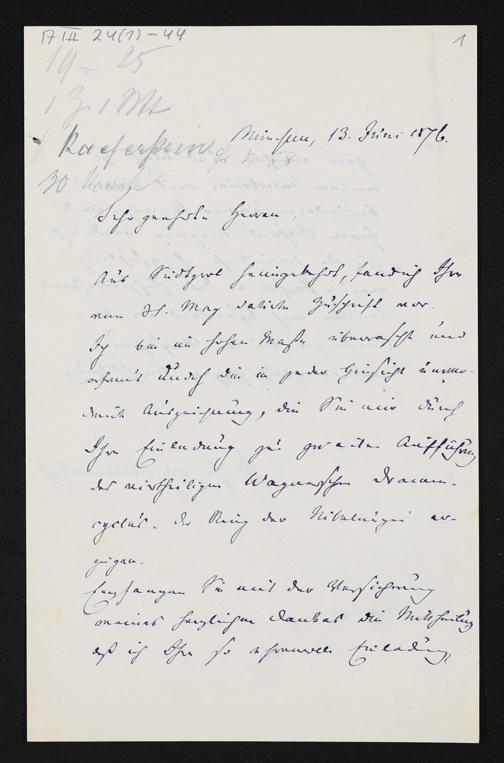 A III 24(1)-44
1
19 - 25
München, 13. Juni 1876.
Sehr geehrte Herren!
Aus Südtyrol heimgekehrt, fand ich Ihre
vom 31. May datirte Zuschrift vor.
Ich bin im hohen Maße überrascht und
erfreut durch die in jeder Hinsicht
Auszeichnung, die Sie mir durch
Ihre Einladung zur zweiten Aufführung
des viertheiligen Wagnerschen Dramen-
cyclus. der Ring der Nibelungen er-
zeigen.
Empfangen Sie mit der Versicherung
meines herzlichen Dankes die Mittheilung
daß ich Ihre so ehrenvolle Einladung,